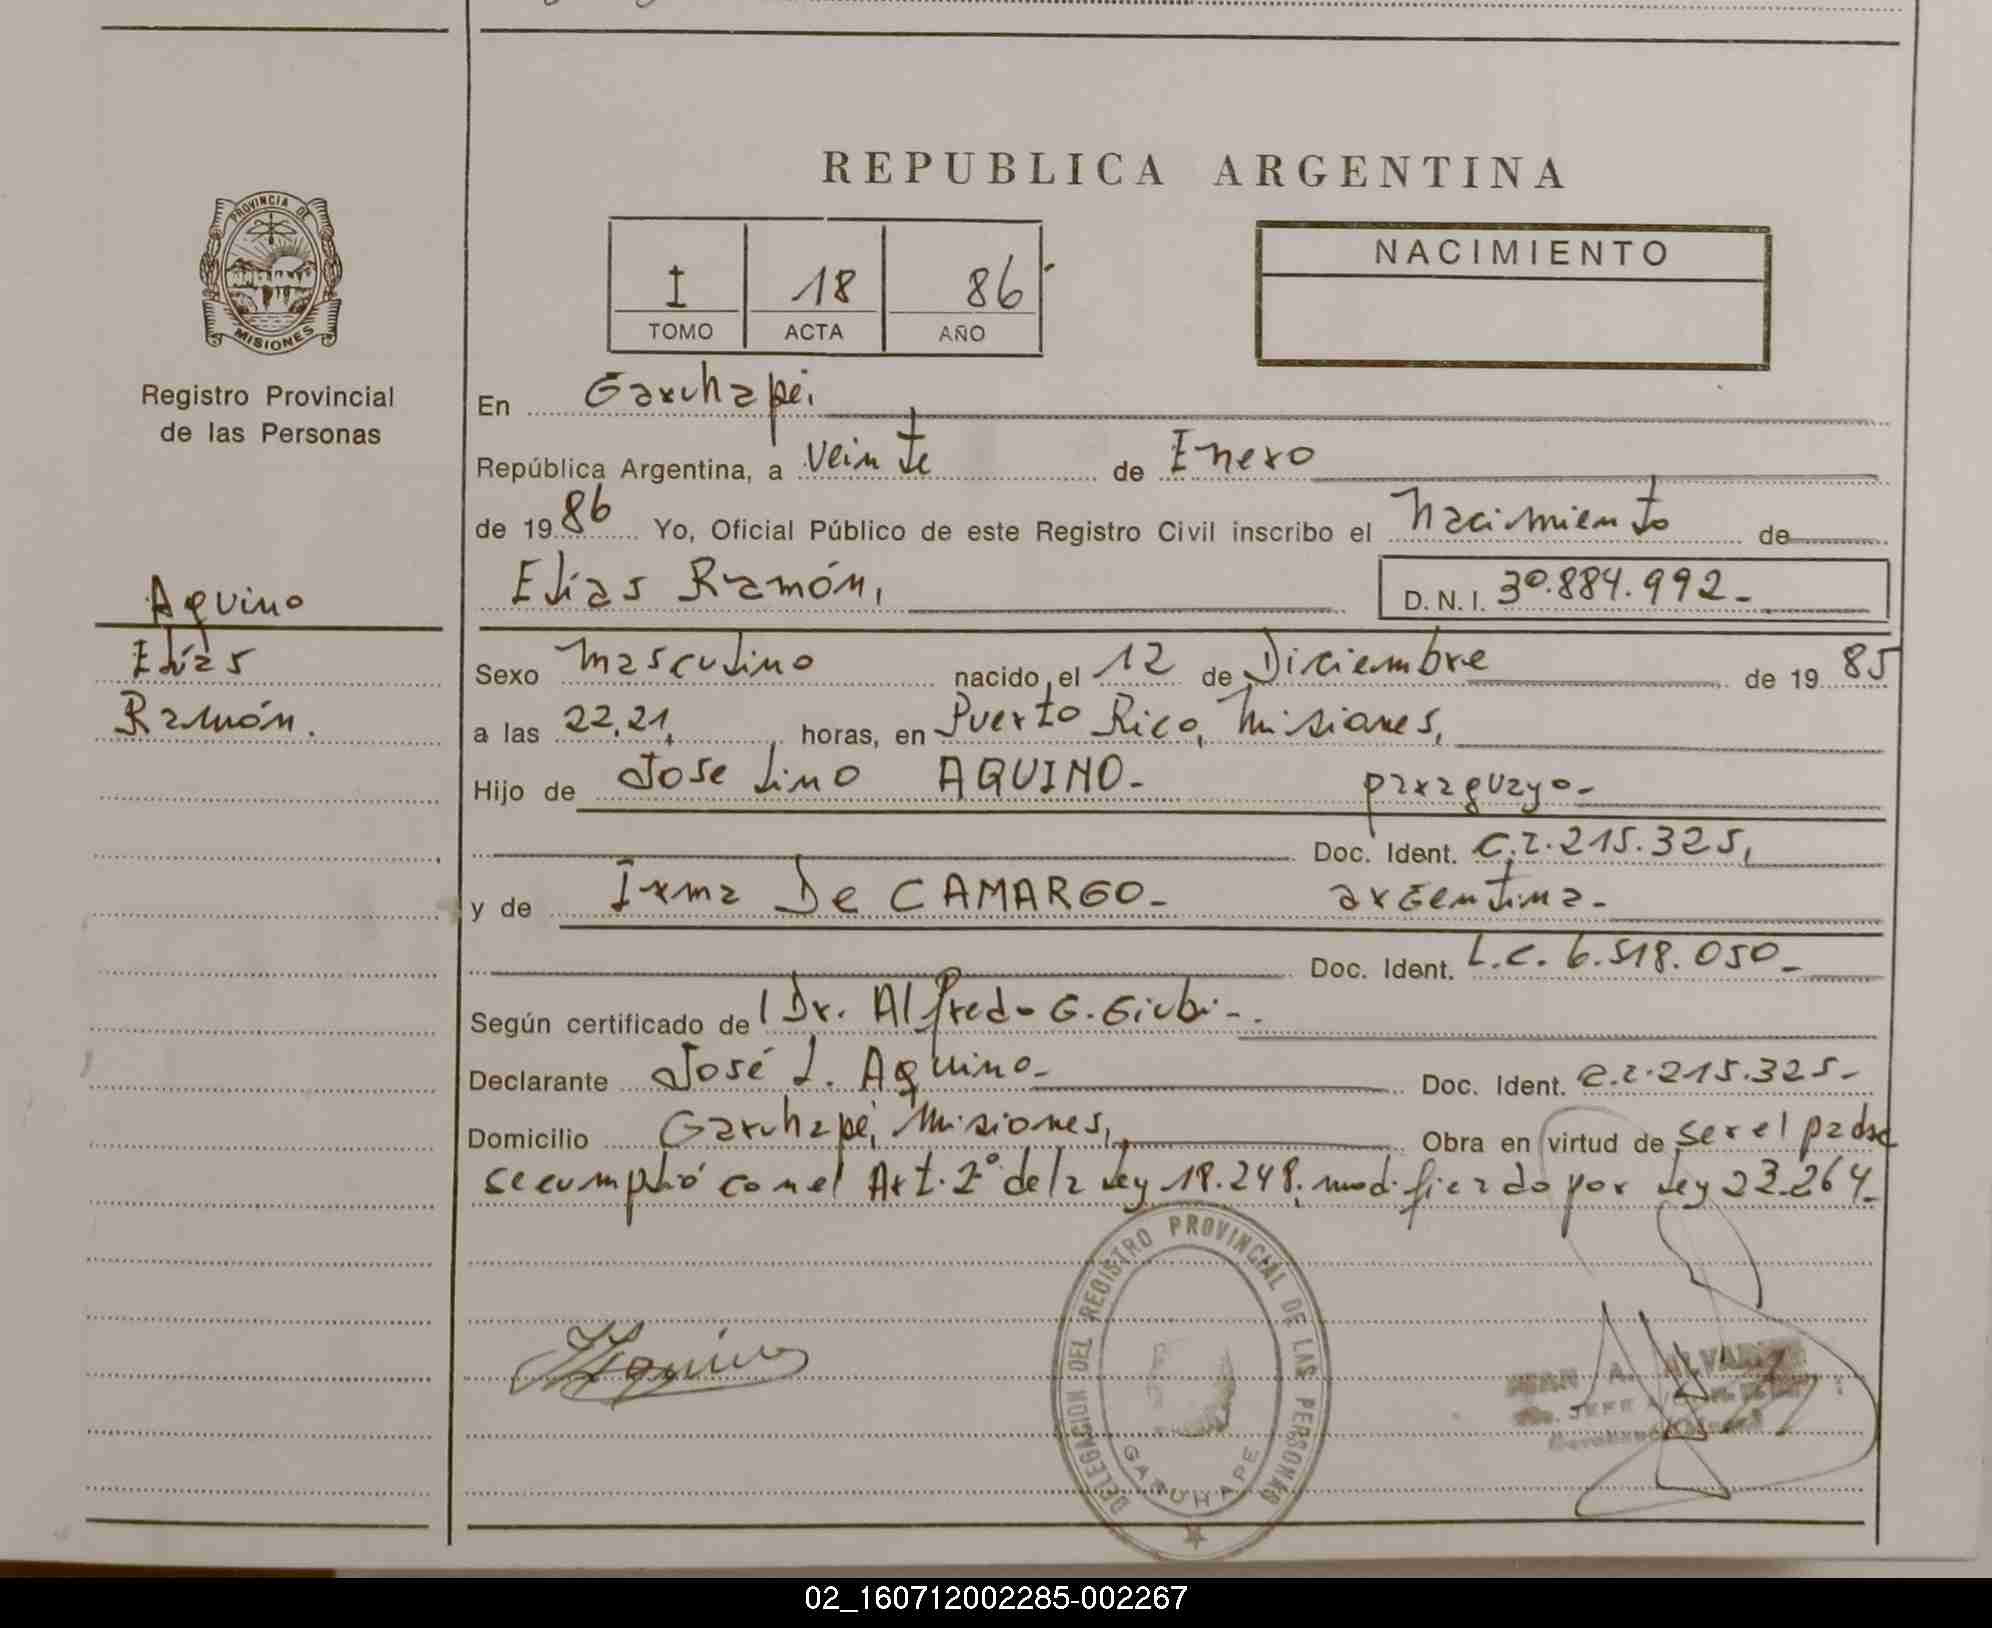 REPUBLICA ARGENTINA
PROVINCIA DE
MISIONES
Registro Provincial
de las Personas
I 18 86
TOMO ACTA AÑO
NACIMIENTO
En Garuhapé,
República Argentina, a veinte de Enero
de 1986 Yo, Oficial Público de este Registro Civil inscribo el nacimiento de
Elías Ramón, D.N.I. 30.884.992-
Aquino
Elías
Ramón.
Sexo masculino nacido el 12 de Diciembre de 1985
a las 22,21, horas, en Puerto Rico, Misiones,
Hijo de Jose Lino AQUINO- paraguayo-
Doc. Ident. C.I. 215.325,
y de Irma De CAMARGO- argentina-
Doc. Ident. L.C. 6.518.050-
Según certificado de Dr. Alfredo G. Giubi-.
Declarante José L. Aquino- Doc. Ident. C.I. 215.325-
Domicilio Garuhapé, Misiones, Obra en virtud de ser el padre
se cumplió con el Art. 2° de la Ley 18.248, modificado por Ley 23.264-
DELEGACION DEL REGISTRO PROVINCIAL DE LAS PERSONAS
GARUHAPE
Aquino
A. ALVAREZ
JEFE
02_160712002285-002267